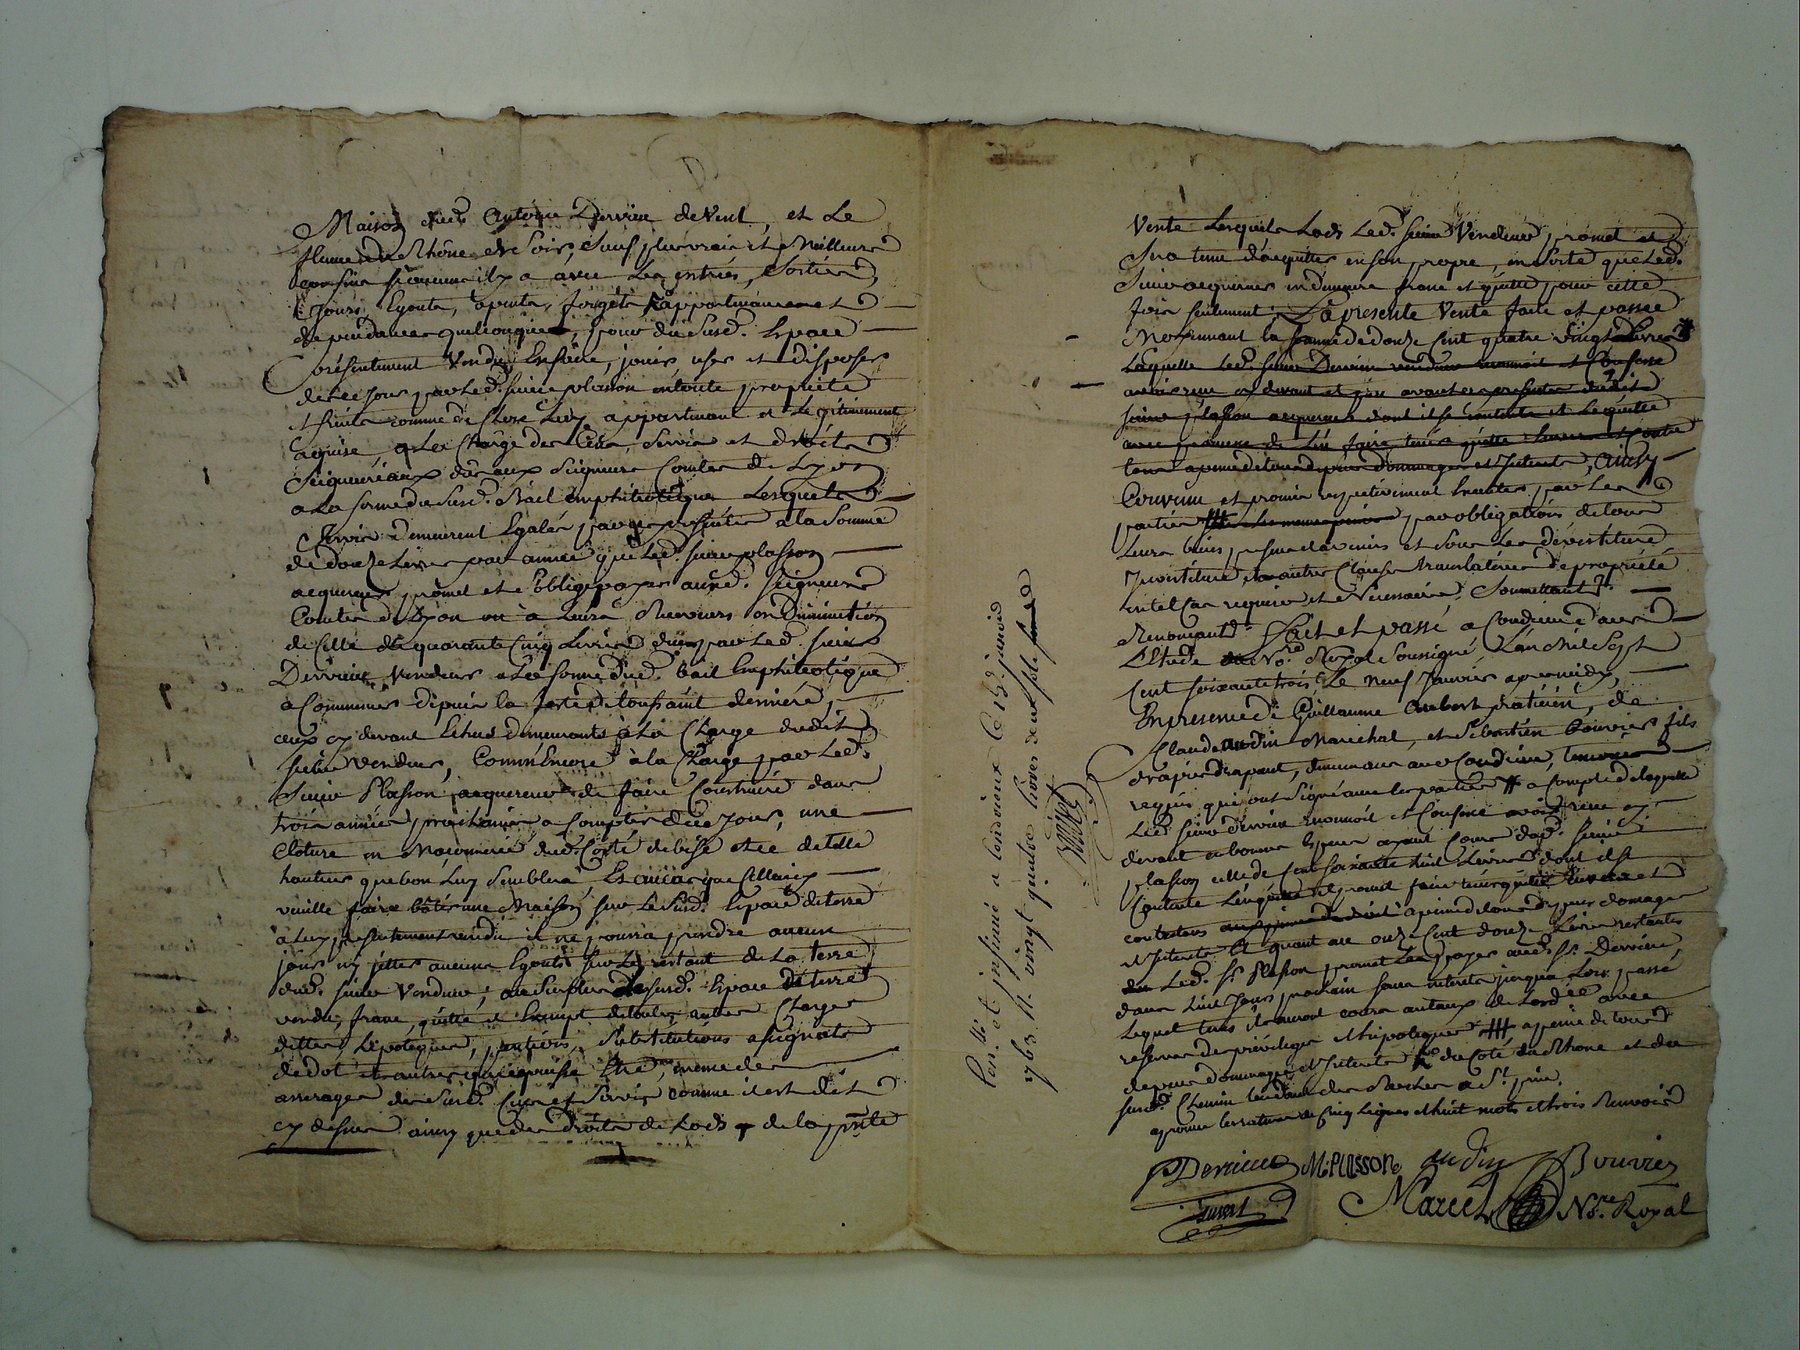 Maison dud. Antoine Dervieu de vent, et Le
fleuve du Rhône de Soir, Sauf plus vrais et Meilleurs
Confins si aucuns il y a avec Les entrées, Sorties,
Jours, Egouts, apartenances et
dépendances quelconques, pour du Susd. Espace
présentement Vendu Ensuite, jouir, user et disposer
de ce jour par led. Sieur plasson en toute propriété
et fruits comme de Chose Luy appartenant et Légitimement
aquise, à La Charge des Cens, Servis et droits
Seigneuriaux dus aux Seigneurs Comtes de Lyon
a La forme du Susd. Bail emphiteotique Lesquels
Servis demeurent Egalés par à la Somme
de douze Livres par année que led. Sieur plasson
aquereur promet et s'oblige payer auxd. Seigneurs
Comtes de Lyon ou à Leurs Receveurs en Diminution
de Celle de quarante Cinq Livres dues par Led. Sieur
Dervieu Vendeur a La forme dud. bail Emphiteotique
a Commencer depuis la fete de toussaint derniere,
ceux cy devant Echus demeurants à La Charge dudit
Sieur vendeur, Comm'Encore à la Charge par Led.
Sieur Plasson aquereur de faire Construire dans
trois années prochaines a Compter de ce jour, une
Cloture en Maçonnerie dud. Coté de bise et ce de telle
hauteur que bon Luy Semblera, En cas que
veuille faire bâtir une Maison sur Le Susd. Espace de terre
à Luy présentement vendu il ne pourra prendre aucun
jour ny jetter aucuns Egouts sur Le restant de La terre
dud. Sieur Vendeur, au Surplus Le susd. Espace de terre
vendu, franc, quitte et Exempt de toutes autres Charges
dettes, hipoteques, pentions, Substitutions assignats
de dot et autres quelconques même des
arrerages des Susd. Cens et Servis comme il est dit
cy dessus ainsy que des droits de Lods de la pnte
Vente Lesquels Lods Led. Sieur Vendeur promet et
Sera tenu d'acquitter en son propre, en Sorte que Led.
Sieur aquereur en demeure franc et quitte pour cette
fois Seulement; La présente Vente faite et passée
Moyennant la Somme de douze Cent quatre vingt Livres
Laquelle Led. Sieur Dervieu vendeur reconnoit et Confesse
avoir reçu cy devant et peu avant ces presentes dudit
Sieur plasson aquereur dont il se contente et Le quitte
avec promesse de L'en faire tenir quitte Envers et Contre
tous a peine de tous depens Dommages et Interets, Ainsy
Convenu et promis respectivement Executer par Les
parties par obligations de tous
Leurs biens presens et avenir et sous Les devestiture
Investiture et autres Clauses translatives de propriété
en tel Cas requises et Necessaires. Soumettant
Renonçant Fait et passé a Condrieu dans
L'Etude du No.re Royal Soussigné L'an Mil Sept
Cent soixante trois, Le neuf Janvier apres midy,
En presence de Guillaume praticien, de
Claude audin Marechal, et Sebastien bouvier fils
drapier drapant, demeurans aud. Condrieu, temoins
requis qui ont Signé avec Les parties a Compte de Laquelle
Led. Sieur Dervieu reconnoit et Confesse avoir reçu cy
devant en bonnes Especes ayant Cours dud. Sieur
plasson celle de Cent Soixante huit Livres dont il se
Contente L'en quitte et promet faire tenir quitte Envers et
contre tous a peine de tous depens domages
et Interets Et quant aux onze Cent douze Livres restantes
Led. Sr. Plasson promet Les payer aud. Sr. Dervieu
dans huit Jours prochain sans interets jusqu'a Lors passé
Lequel tems ils auront cours au taux de L'ord.ce avec
reserve de privilege et hipoteque a peine de tous
depens dommages et Interets du Coté du Rhone et du
susd. Chemin tendant des Roches a St. prim.
aprouvé La rature de Cinq Lignes et huit mots et trois Renvois
Dervieu M. Plasson audin Bouvier
Marcel No.re Royal
Con.lé et insinué a Condrieux Ce 15 janvier
1763 R. vingt quatre livres deux sols